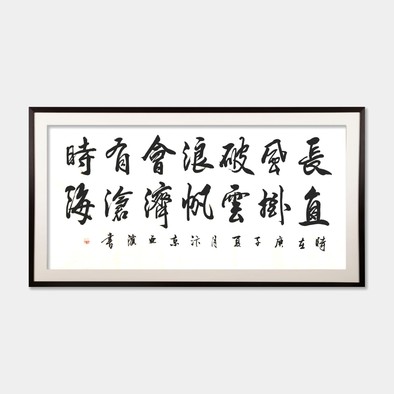 長風破浪會有時
直掛雲帆濟滄海
時在庚子夏月汴京亚濱書